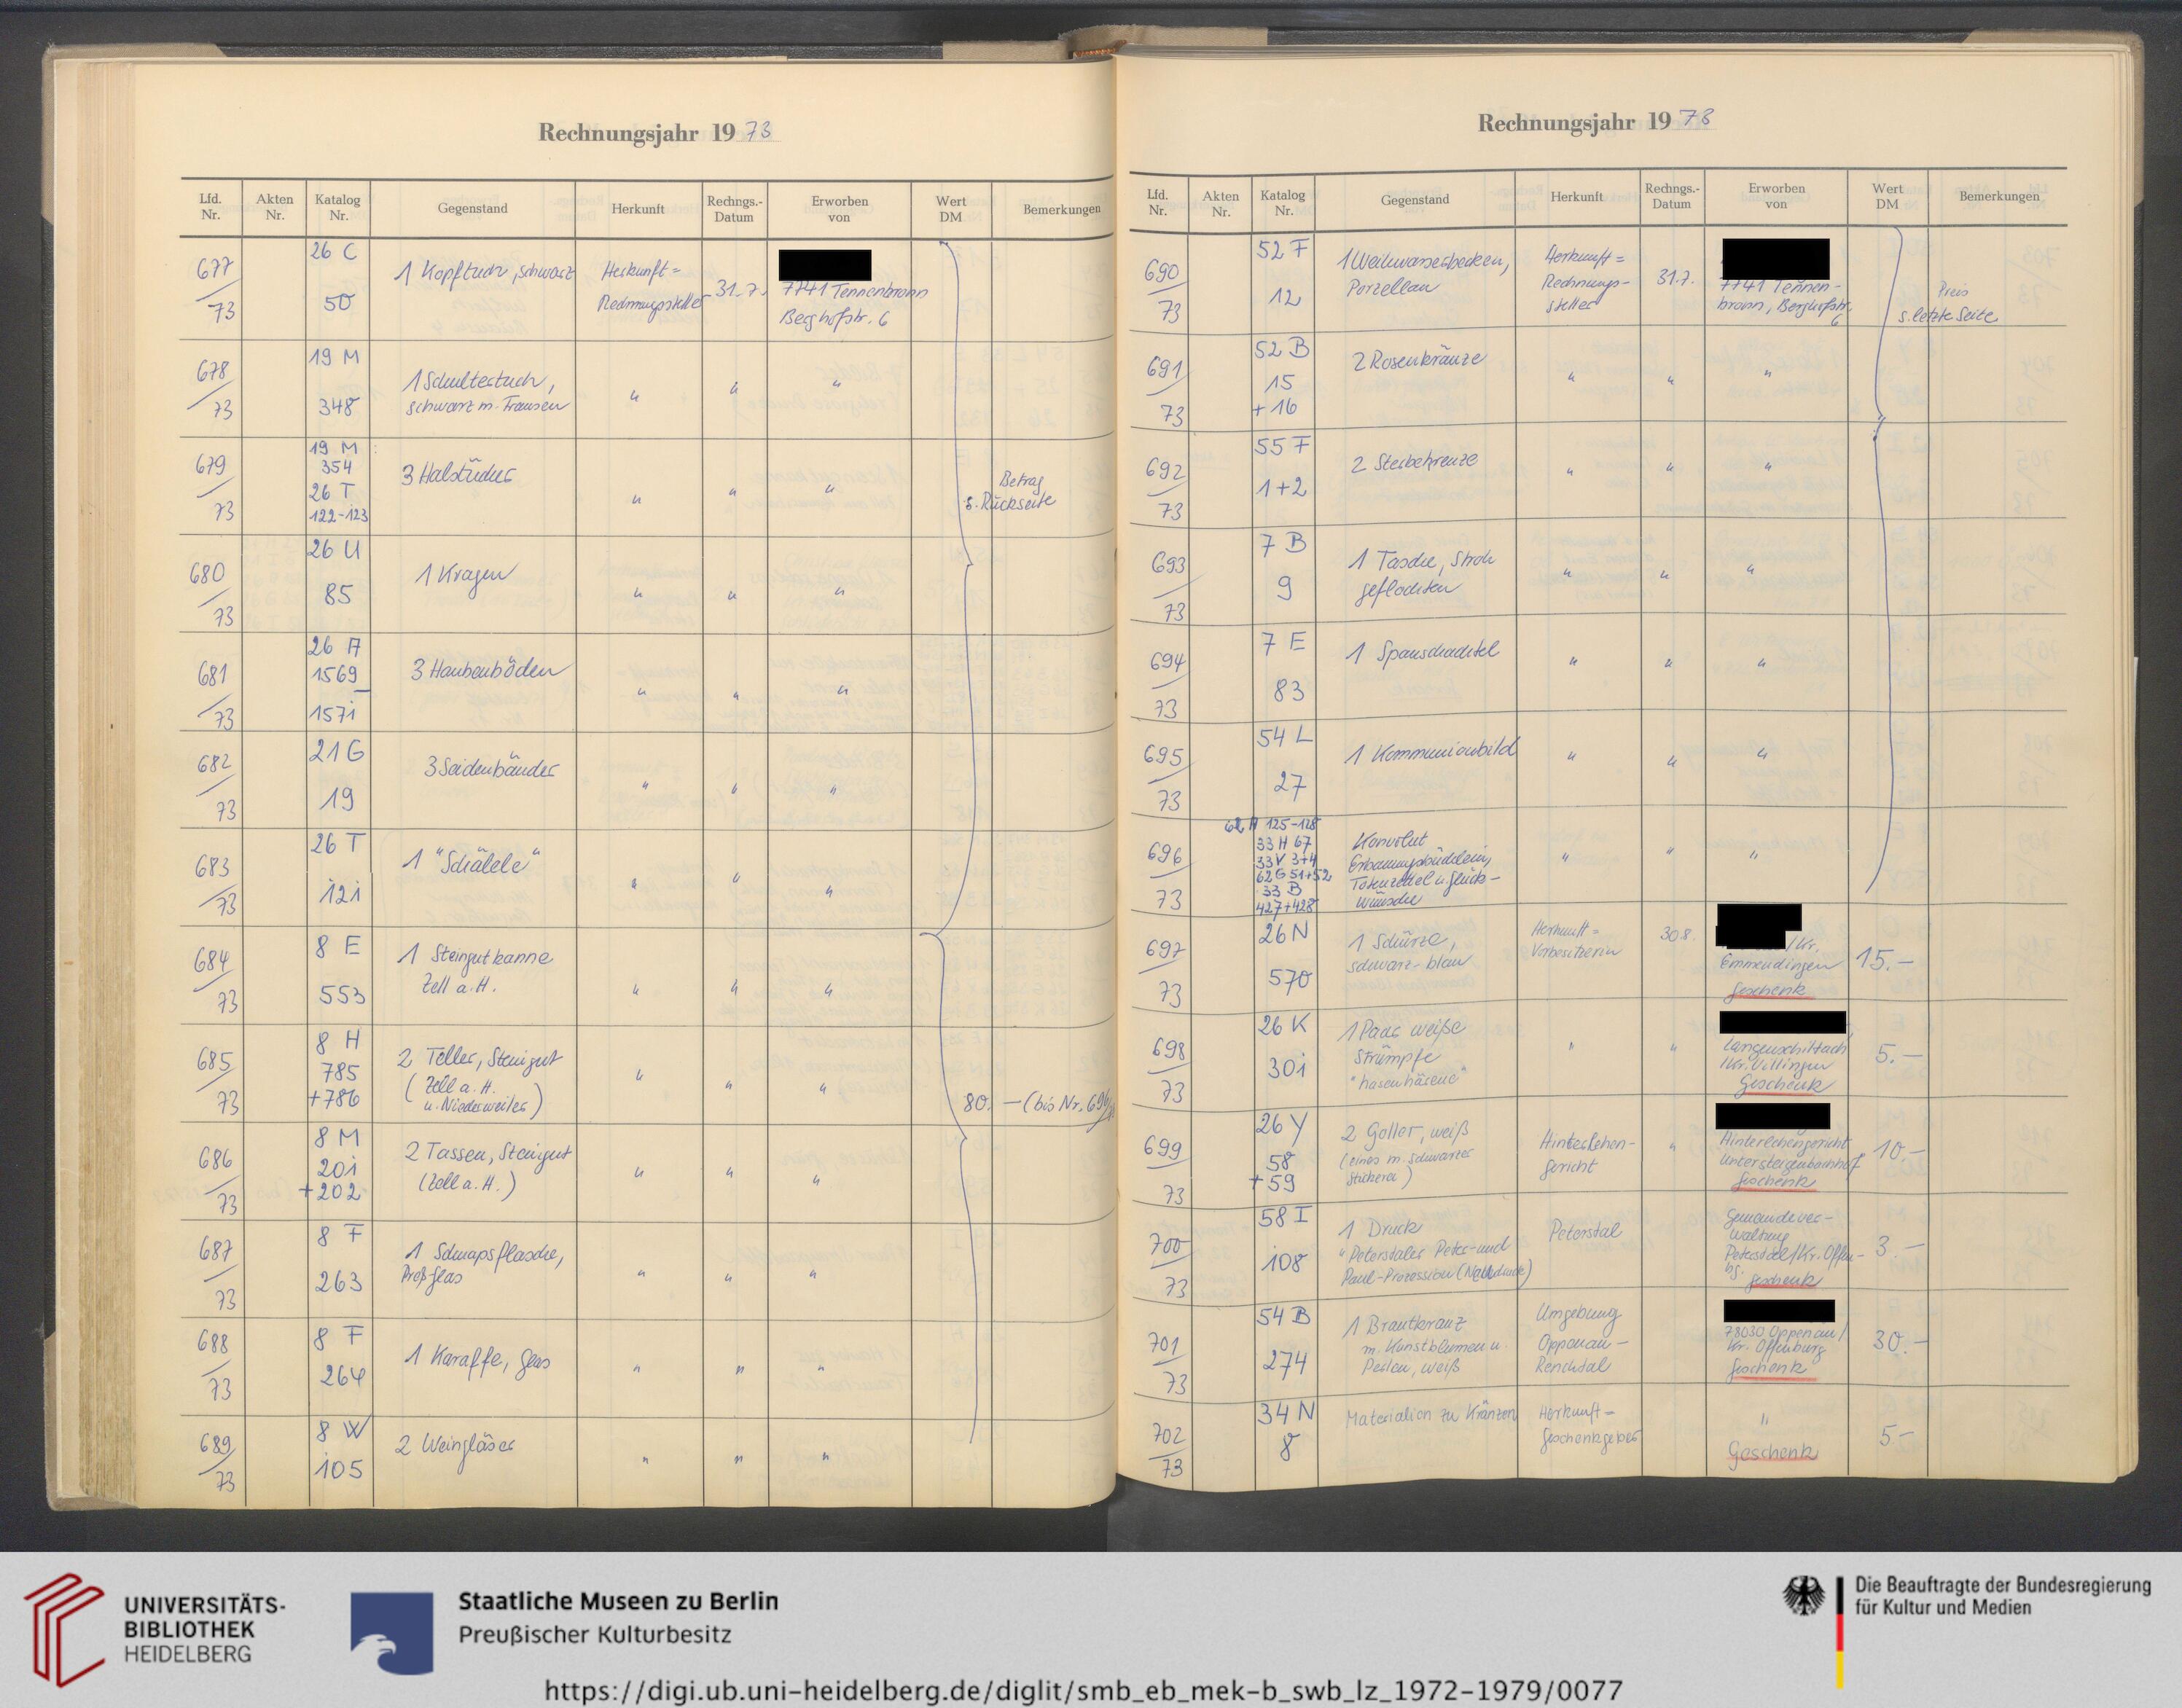 Rechnungsjahr 19 73
Lfd. Nr. Akten Nr. Katalog Nr. Gegenstand Herkunft Rechngs.-Datum Erworben von Wert DM Bemerkungen
677/73 26 C 50 1 Kopftuch, schwarz Herkunft = Rechnungssteller 31.7. 7741 Tennenbronn Berghofstr. 6
678/73 19 M 348 1 Schultertuch, schwarz m. Fransen " " "
679/73 19 M 354 26 T 122-123 3 Halstücher " " " Betrag s. Rückseite
680/73 26 U 85 1 Kragen " " "
681/73 26 A 1569 - 1571 3 Haubenböden " " "
682/73 21 G 19 3 Seidenbänder " " "
683/73 26 T 121 1 "Schälele" " " "
684/73 8 E 553 1 Steingutkanne Zell a. H. " " "
685/73 8 H 785 + 786 2 Teller, Steingut (Zell a. H. u. Niederweiler) " " " 80.- (bis Nr. 696/
686/73 8 M 201 + 202 2 Tassen, Steingut (Zell a. H.) " " "
687/73 8 F 263 1 Schnapsflasche, Preßglas " " "
688/73 8 F 264 1 Karaffe, Glas " " "
689/73 8 W 105 2 Weingläser " " "
Rechnungsjahr 19 73
Lfd. Nr. Akten Nr. Katalog Nr. Gegenstand Herkunft Rechngs.-Datum Erworben von Wert DM Bemerkungen
690/73 52 F 12 1 Weihwasserbecken, Porzellan Herkunft = Rechnungs-steller 31.7. 7741 Tennen-bronn, Berghofstr. 6 Preis s. letzte Seite
691/73 52 B 15 + 16 2 Rosenkränze " " "
692/73 55 F 1+2 2 Sterbekreuze " " "
693/73 7 B 9 1 Tasche, Stroh geflochten " " "
694/73 7 E 83 1 Spanschachtel " " "
695/73 54 L 27 1 Kommunionbild " " "
696/73 62 A 125-128 33 H 67 33 V 3+4 62 G 51+52 33 B 427+428 Konvolut Erbauungsbüchlein, Totenzettel u. Glück-wünsche " " "
697/73 26 N 570 1 Schürze, schwarz-blau Herkunft = Vorbesitzerin 30.8. /Kr. Emmendingen Geschenk 15.-
698/73 26 K 301 1 Paar weiße Strümpfe "hasenhärene" " " Langenschiltach /Kr. Villingen Geschenk 5.-
699/73 26 Y 58 + 59 2 Goller, weiß (eines m. schwarzer Stickerei) Hinterlehen-gericht " Hinterlehengericht Untersteigenbachhof Geschenk 10.-
700/73 58 I 108 1 Druck "Peterstaler Peter- und Paul-Prozession (Nachdruck) Peterstal Gemeindever-waltung Peterstal/Kr. Offen-bg. Geschenk 3.-
701/73 54 B 274 1 Brautkranz m. Kunstblumen u. Perlen, weiß Umgebung Oppenau - Renchtal 78030 Oppenau/ Kr. Offenburg Geschenk 30.-
702/73 34 N 8 Materialien zu Kränzen Herkunft = Geschenkgeber " Geschenk 5-
UNIVERSITÄTS-
BIBLIOTHEK
HEIDELBERG
Staatliche Museen zu Berlin
Preußischer Kulturbesitz
Die Beauftragte der Bundesregierung
für Kultur und Medien
https://digi.ub.uni-heidelberg.de/diglit/smb_eb_mek-b_swb_lz_1972-1979/0077